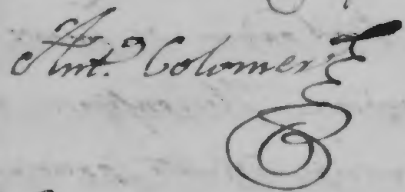 Ant.º Colomer